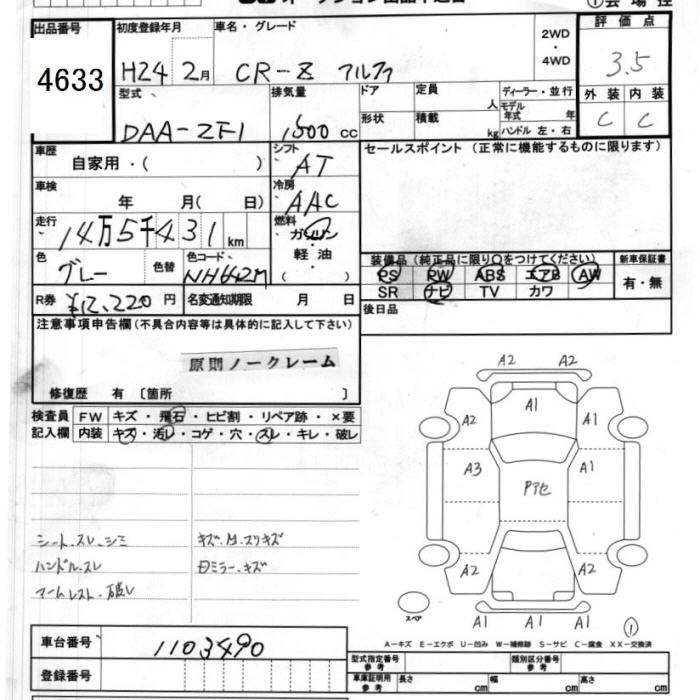 出品番号 4633
初度登録年月 H24 2月
車名・グレード CR-Z アルファ
2WD・4WD
評価点 3.5
外装 内装
C C
型式 DAA-ZF1
排気量 1500 cc
ドア
定員 人
形状
積載 kg
ディーラー・並行
モデル年式 年
ハンドル 左・右
車歴 自家用・( )
シフト AT
セールスポイント (正常に機能するものに限ります)
車検 年 月( 日)
冷房 AAC
走行 14万5千431 km
燃料 ガソリン・軽油・( )
色 グレー 色替
色コード NH642M
装備品 (純正品に限り○をつけてください)
新車保証書
PS PW ABS エアB AW
有・無
SR ナビ TV カワ
R券 ¥12,220 円
名変通知期限 月 日
後日品
注意事項申告欄 (不具合内容等は具体的に記入して下さい)
原則ノークレーム
修復歴 有 〔箇所 〕
検査員 FW キズ・飛石・ヒビ割・リペア跡・×要
記入欄 内装 キズ・汚レ・コゲ・穴・スレ・キレ・破レ
シート.スレ.シミ
キズ.M.スリキズ
ハンドル.スレ
アームレスト.破レ
A2 A2
A1
A2 A1
A3 A1
Pアセ
A2 A2
スペア
A1 A1 A1
①
A-キズ E-エクボ U-凹み W-補修跡 S-サビ C-腐食 XX-交換済
車台番号 1103490
登録番号
型式指定番号 参考
類別区分番号 参考
車庫証明用 参考 長さ cm 幅 cm 高さ cm